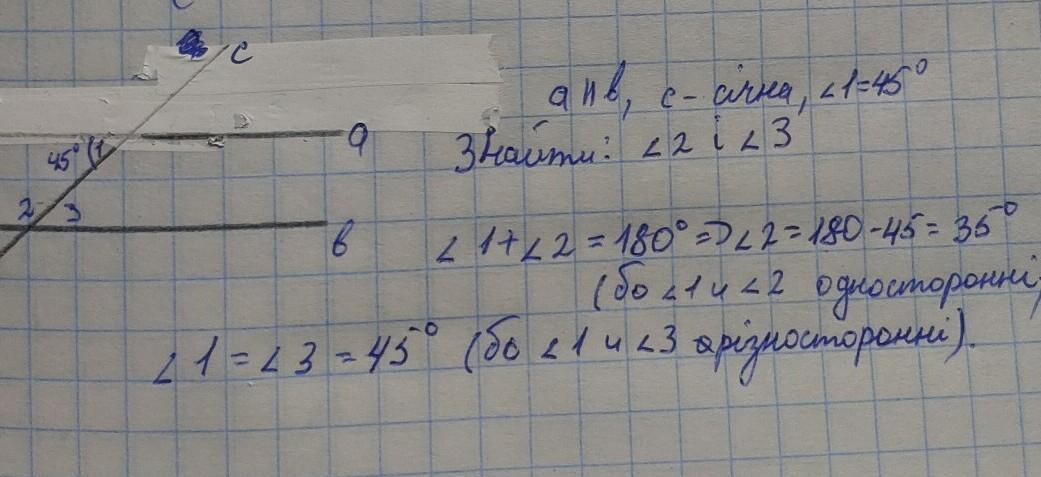 c
a ∥ b, c - січна, ∠1=45°
a
Знайти: ∠2 і ∠3
45° 1
2 3
b
∠1+∠2 = 180° => ∠2 = 180-45 = 35°
(бо ∠1 и ∠2 односторонні)
∠1 = ∠3 = 45° (бо ∠1 и ∠3 різносторонні).